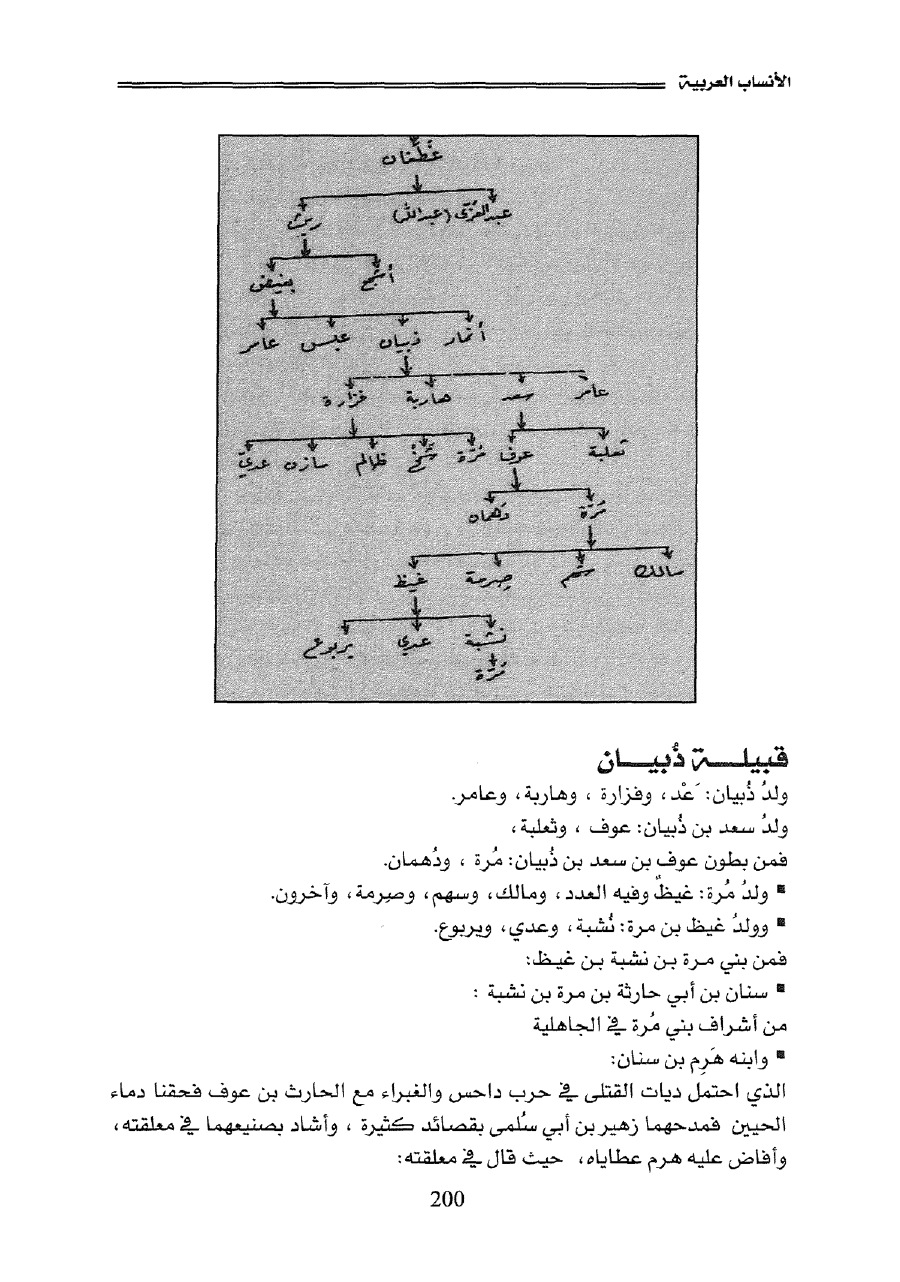 الأنساب العربية
غَطَفان
عبدالعزى (عبدالله) ريث
أشجع بغيض
أنمار ذبيان عبس عامر
عامر سعد هاربة فزارة
ثعلبة عوف مُرّة شمخ ظالم مازن عديّ
مُرّة دهمان
مالك سهم صِرمة غيظ
نشبة عدي يربوع
مُرّة
قبيلـــة ذُبيـــان
ولدُ ذُبيان: َعْد، وفزارة ، وهاربة، وعامر.
ولدُ سعد بن ذُبيان: عوف ، وثعلبة،
فمن بطون عوف بن سعد بن ذُبيان: مُرة ، ودُهمان.
▪ ولدُ مُرة: غيظٌ وفيه العدد، ومالك، وسهم، وصِرمة، وآخرون.
▪ وولدُ غيظ بن مرة: نُشبة، وعدي، ويربوع.
فمن بني مرة بن نشبة بن غيظ:
▪ سنان بن أبي حارثة بن مرة بن نشبة :
من أشراف بني مُرة في الجاهلية
▪ وابنه هَرِم بن سنان:
الذي احتمل ديات القتلى في حرب داحس والغبراء مع الحارث بن عوف فحقنا دماء
الحيين فمدحهما زهير بن أبي سُلمى بقصائد كثيرة ، وأشاد بصنيعهما في معلقته،
وأفاض عليه هرم عطاياه، حيث قال في معلقته:
200